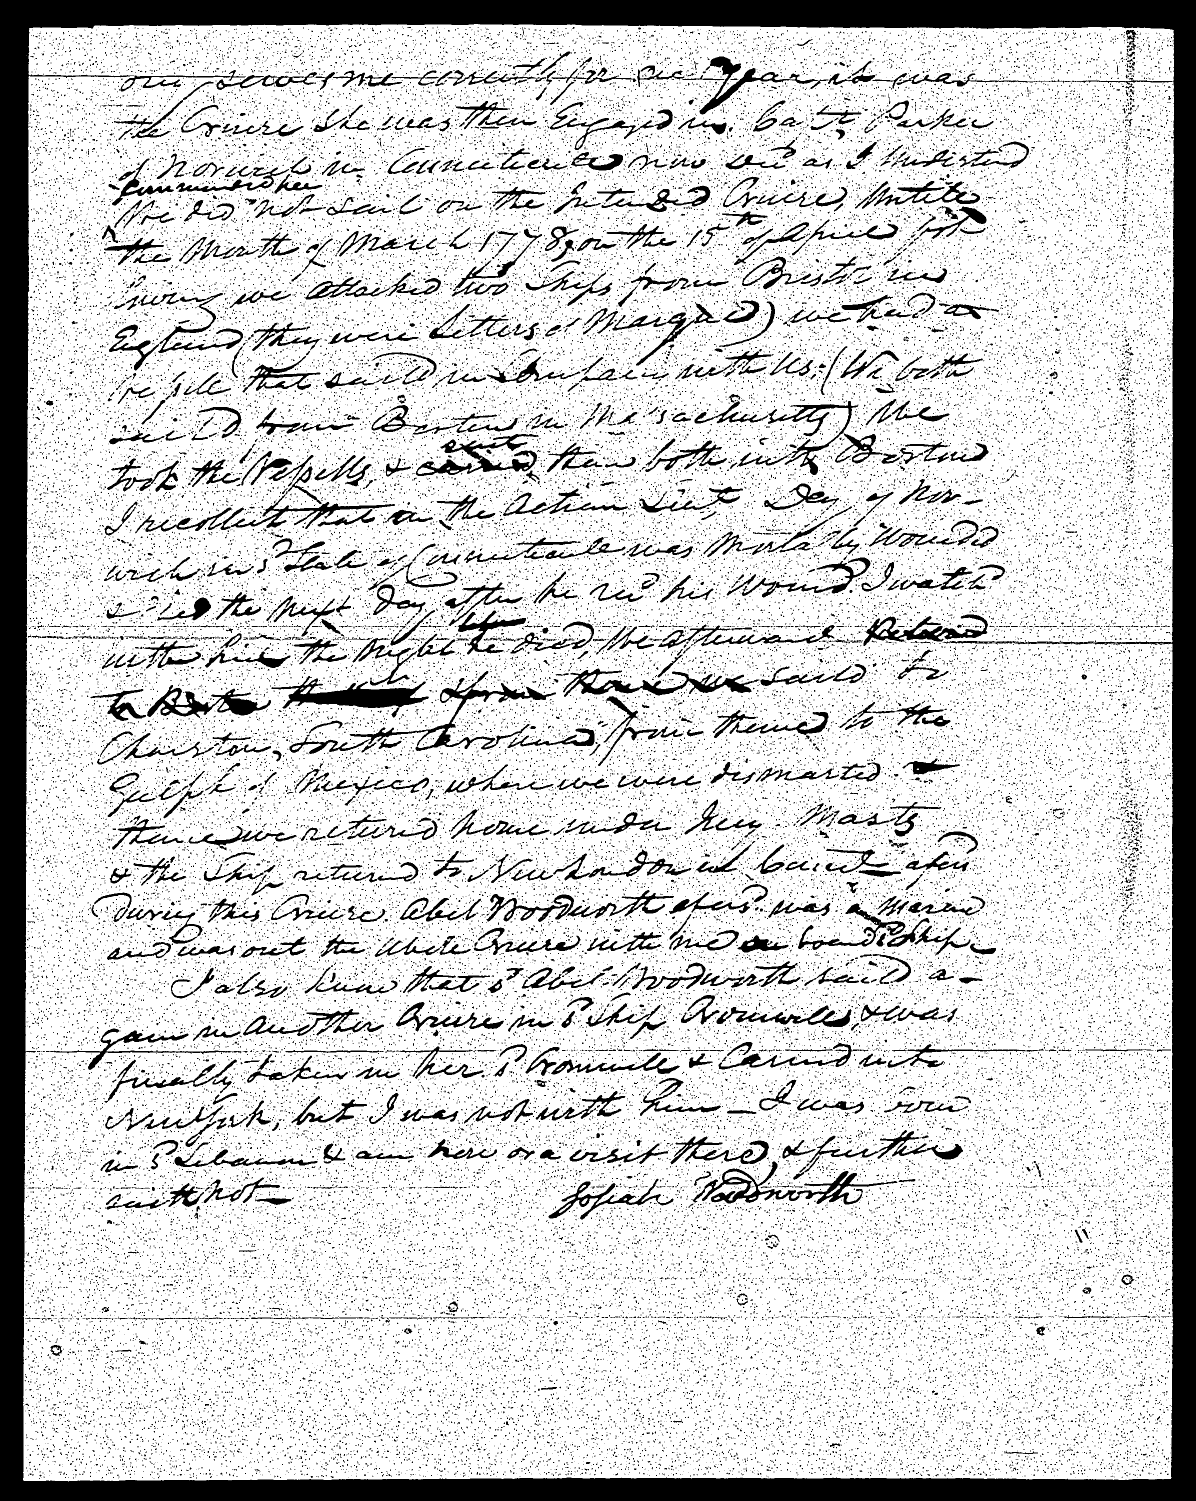 our serves me correctly for one year, it was
the Cruise She was then Engaged in. Capt. Parker
of Norwich in Connecticut now decd as I Understand
Commanded her
We did not sail on the Intended Cruise, Untill
the Month of March 1778, on the 15th of April
we attacked two Ships from Bristol in
England (they were Letters of Marque) we had a
that saild in Company with Us. (We both
saild from Boston in Massachusetts) We
took the Vessells, & carried sent them both into Boston
I recollect that in the Action Lieut. Day of Nor-
wich in sd State of Connecticut was Mortally Wounded
& died the Next day after he recd his Wound. I watchd
with him the Night he died, We afterward Returned
to Boston & from thence we saild to
Charston, South Carolina, from thence to the
Gulph of Mexico, where we were dismasted &
thence we returned home under Jury Masts
& the Ship returned to New London in Connt. afsd
during this Cruise Abel Woodworth afsd. was a Marine
and was out the whole Cruise with me on board sd Ship.
I also know that sd Abel Woodworth saild a-
gain in another Cruise in sd Ship Cromwell, & was
finally taken in her sd Cromwell & Carried into
New York, but I was not with him — I was born
in sd Lebanon & am here on a visit there, & further
saith not — Josiah Wadsworth